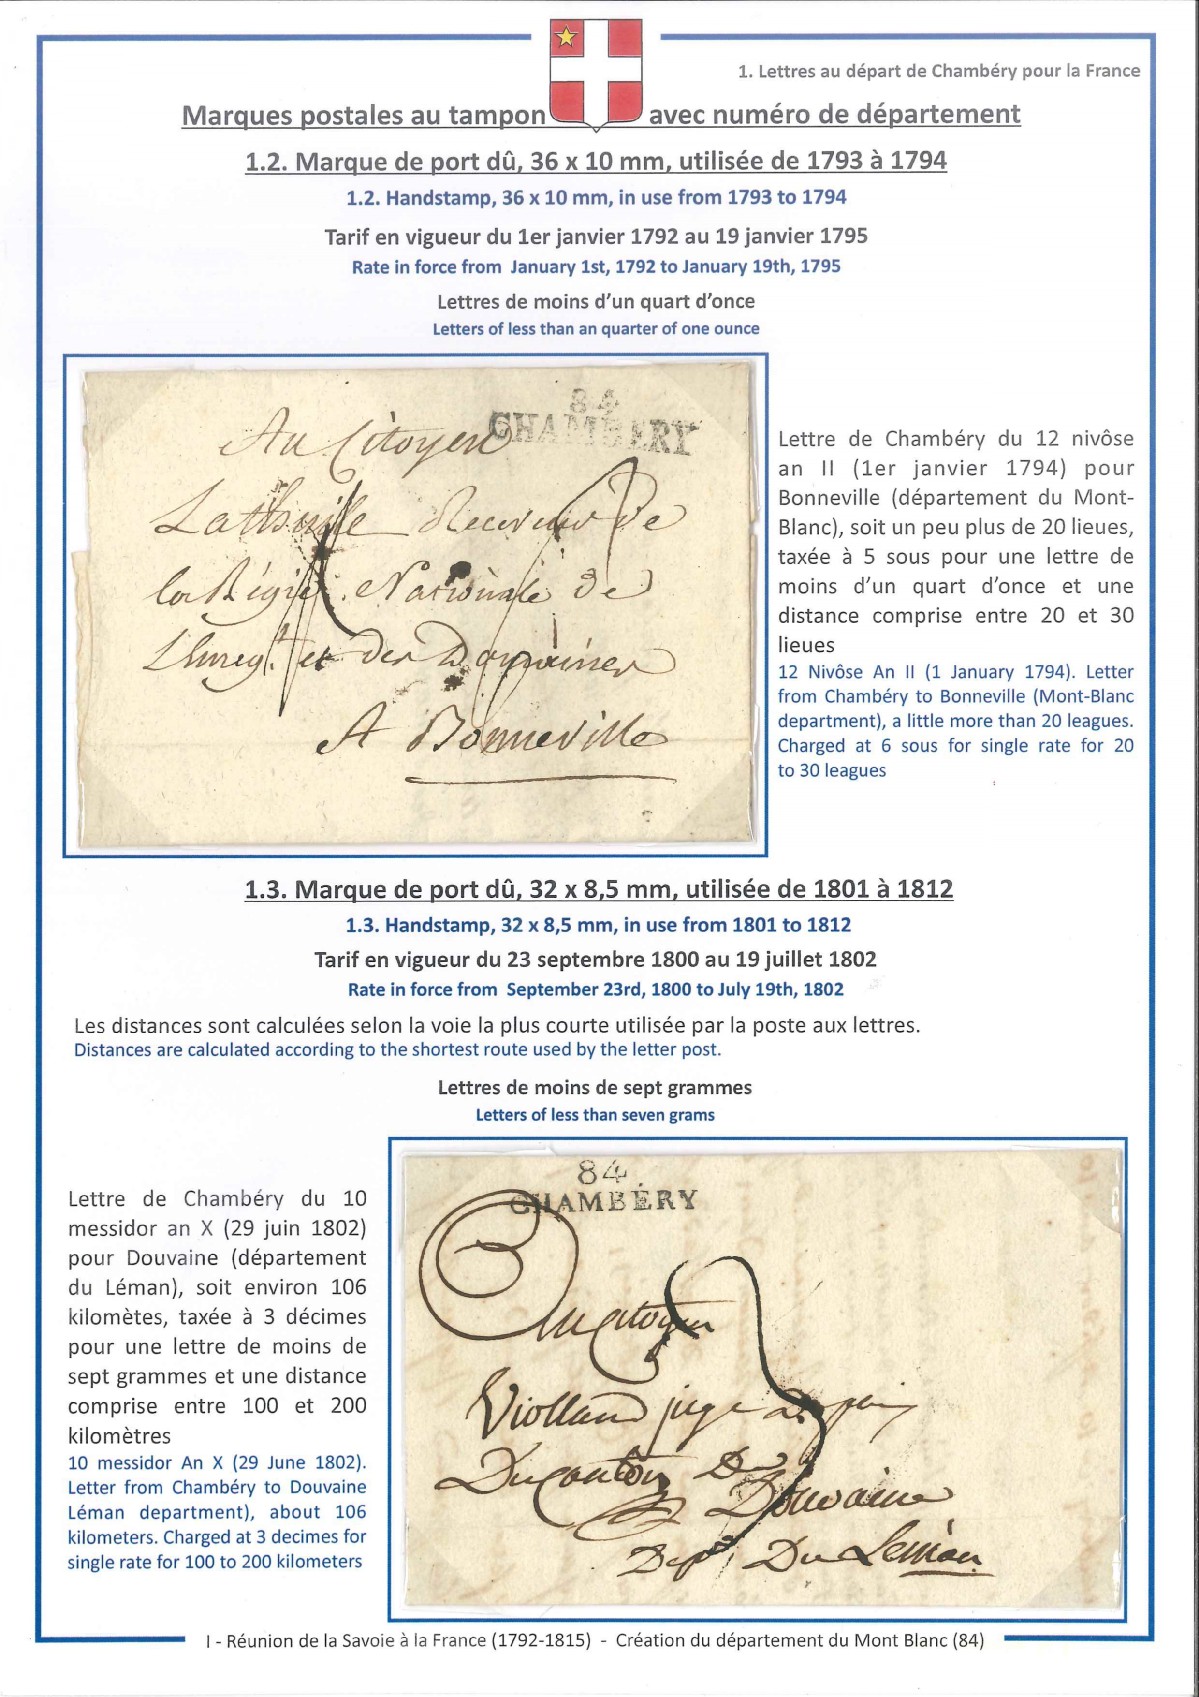 1. Lettres au départ de Chambéry pour la France
Marques postales au tampon avec numéro de département
1.2. Marque de port dû, 36 x 10 mm, utilisée de 1793 à 1794
1.2. Handstamp, 36 x 10 mm, in use from 1793 to 1794
Tarif en vigueur du 1er janvier 1792 au 19 janvier 1795
Rate in force from January 1st, 1792 to January 19th, 1795
Lettres de moins d'un quart d'once
Letters of less than an quarter of one ounce
84
CHAMBERY
Au Citoyen
Lathuile Receveur de
la Régie Nationale de
Lenreg.t et des Domaines
A Bonneville
Lettre de Chambéry du 12 nivôse
an II (1er janvier 1794) pour
Bonneville (département du Mont-
Blanc), soit un peu plus de 20 lieues,
taxée à 5 sous pour une lettre de
moins d'un quart d'once et une
distance comprise entre 20 et 30
lieues
12 Nivôse An II (1 January 1794). Letter
from Chambéry to Bonneville (Mont-Blanc
department), a little more than 20 leagues.
Charged at 6 sous for single rate for 20
to 30 leagues
1.3. Marque de port dû, 32 x 8,5 mm, utilisée de 1801 à 1812
1.3. Handstamp, 32 x 8,5 mm, in use from 1801 to 1812
Tarif en vigueur du 23 septembre 1800 au 19 juillet 1802
Rate in force from September 23rd, 1800 to July 19th, 1802
Les distances sont calculées selon la voie la plus courte utilisée par la poste aux lettres.
Distances are calculated according to the shortest route used by the letter post.
Lettres de moins de sept grammes
Letters of less than seven grams
Lettre de Chambéry du 10
messidor an X (29 juin 1802)
pour Douvaine (département
du Léman), soit environ 106
kilomètes, taxée à 3 décimes
pour une lettre de moins de
sept grammes et une distance
comprise entre 100 et 200
kilomètres
10 messidor An X (29 June 1802).
Letter from Chambéry to Douvaine
Léman department), about 106
kilometers. Charged at 3 decimes for
single rate for 100 to 200 kilometers
84
CHAMBÉRY
Au Citoyen
Violland juge de paix
Du Canton De
Douvaine
Dep.t Du Leman
3
I - Réunion de la Savoie à la France (1792-1815) - Création du département du Mont Blanc (84)